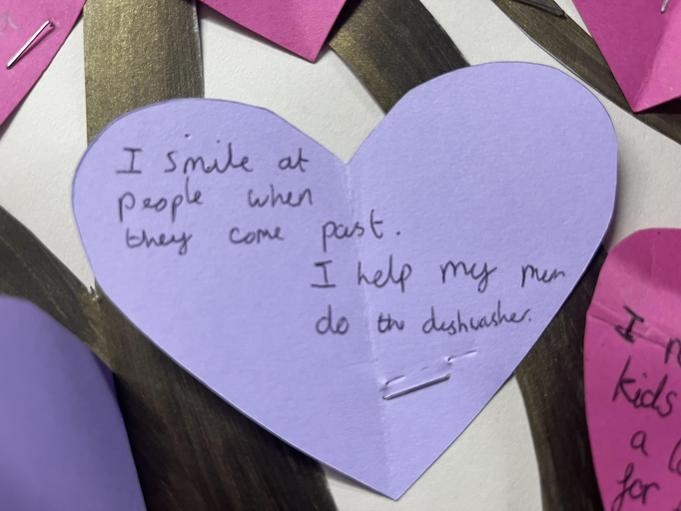 I smile at
people when
they come past.
I help my mum
do the dishwasher.
I
kids
a
for